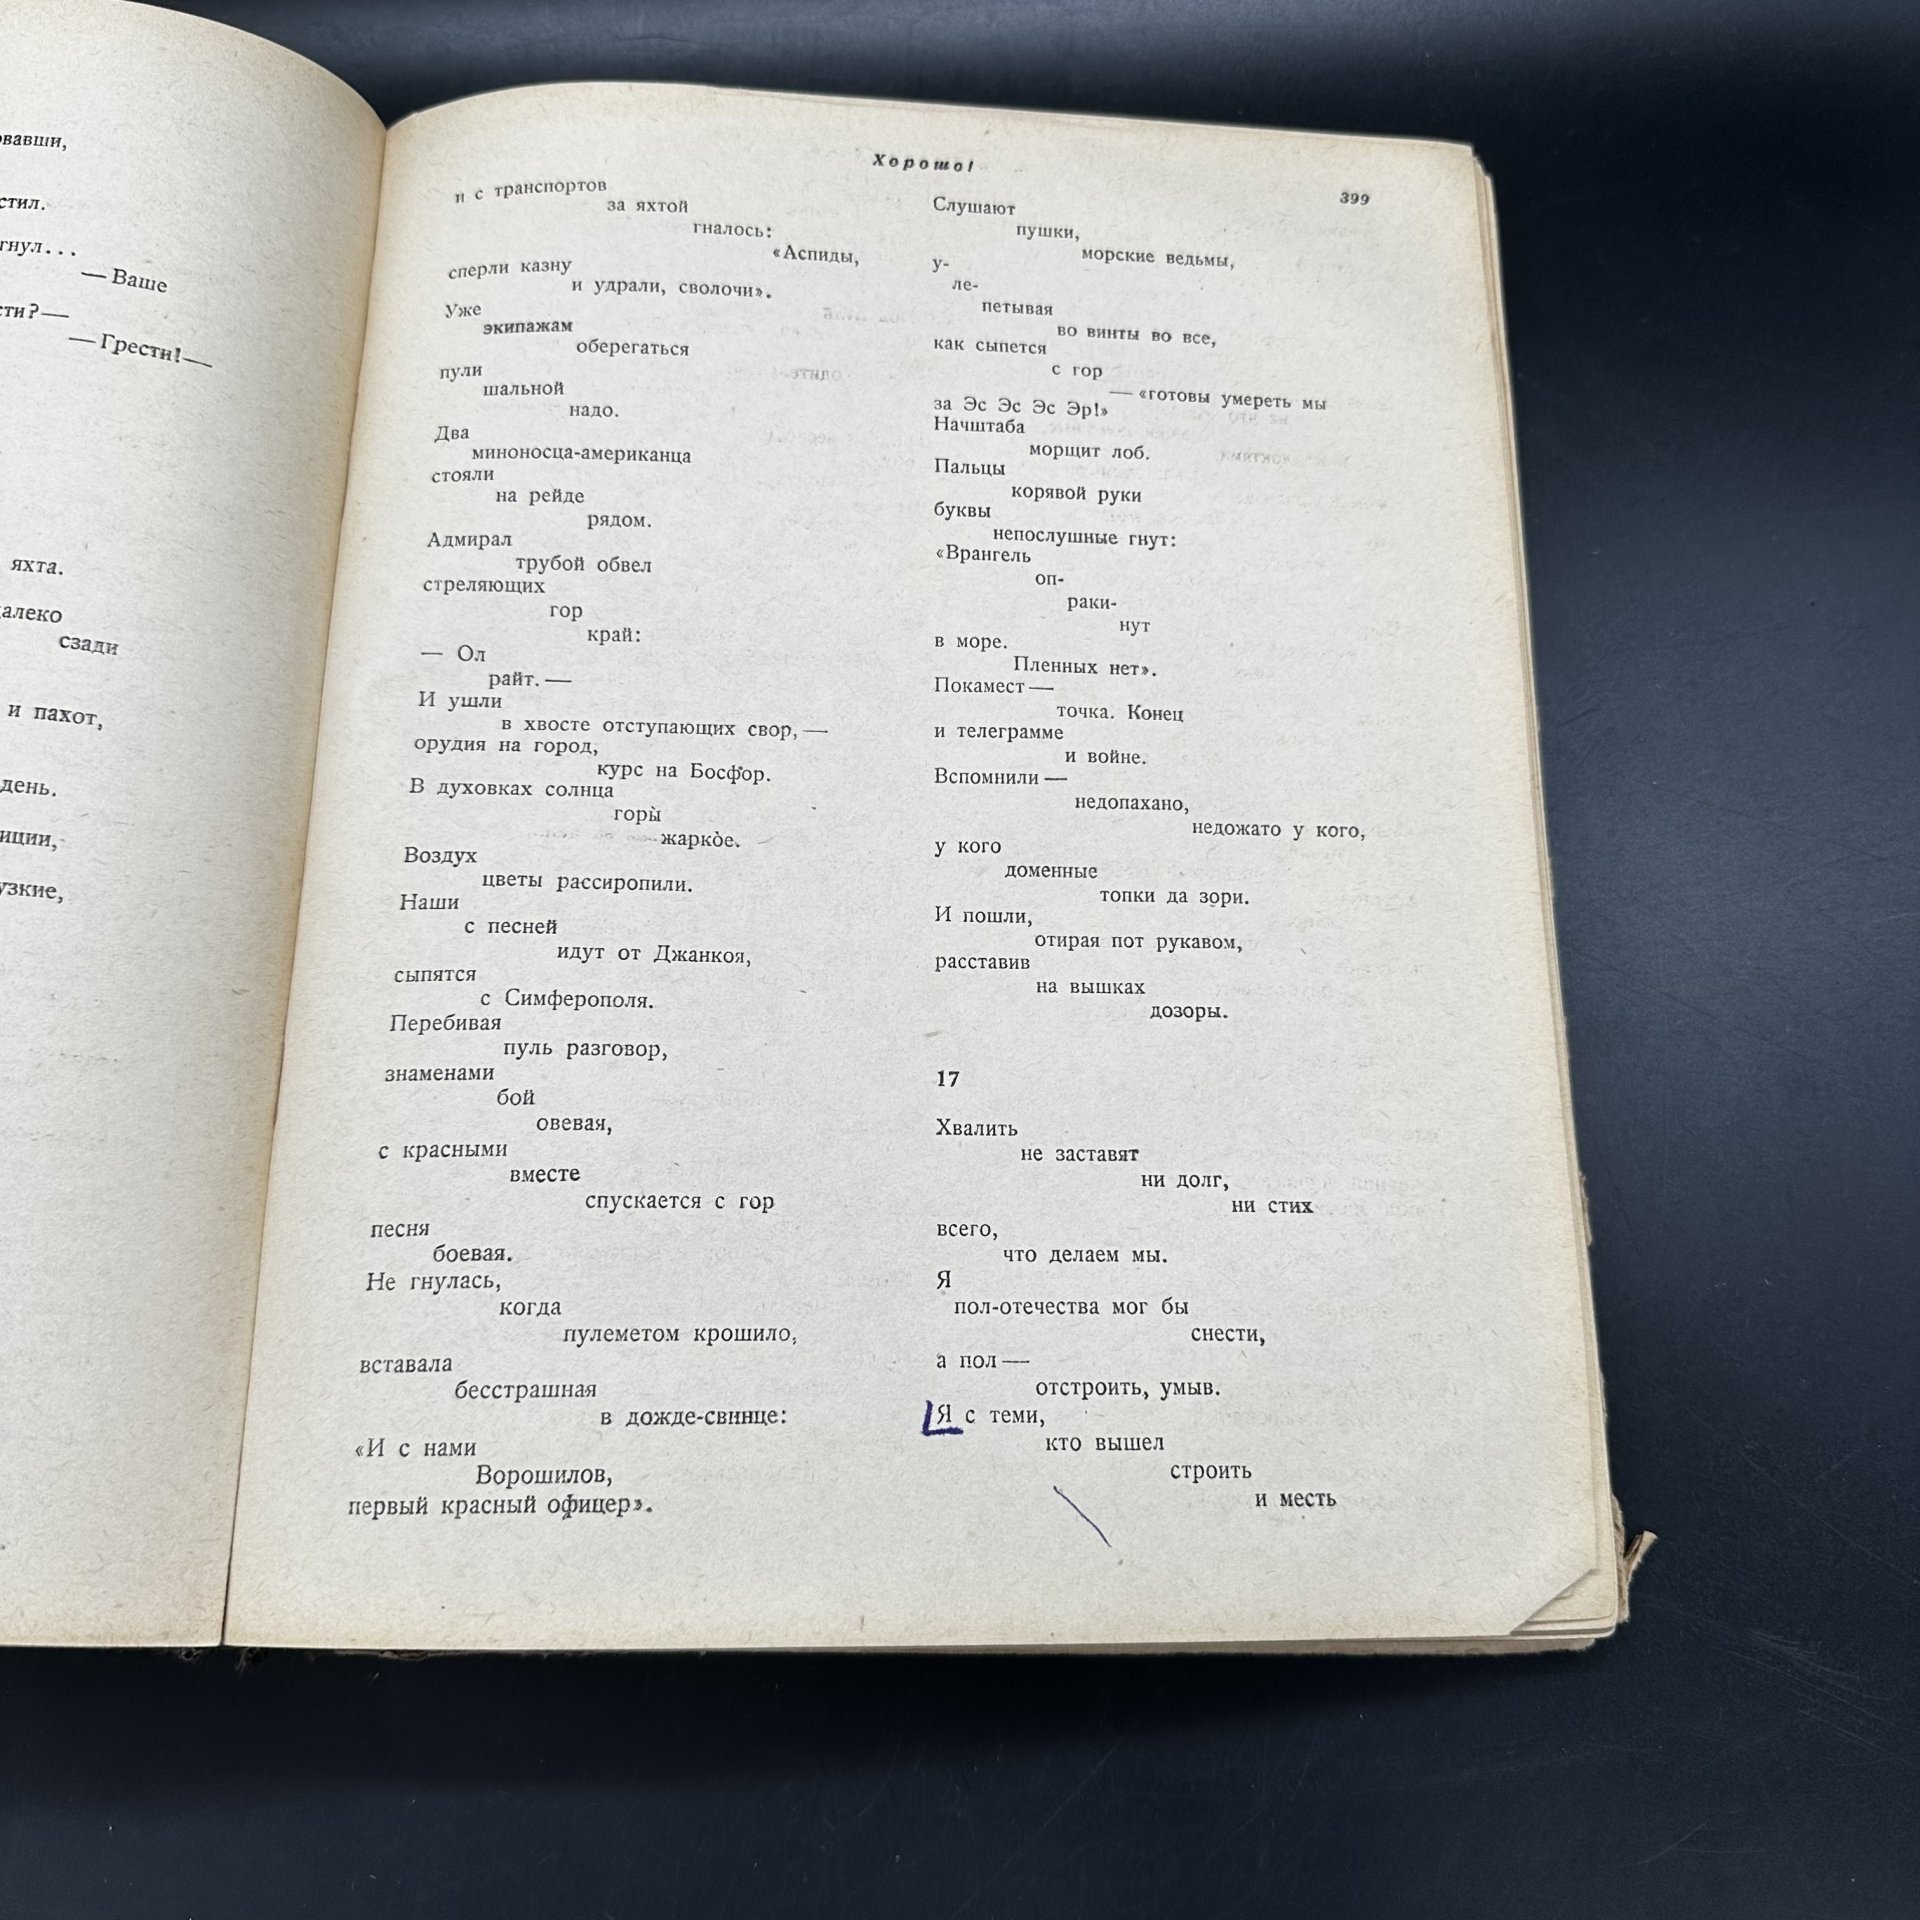 стил.
— Ваше
— Грести! —
яхта.
сзади
и пахот,
день.
Хорошо!
399
и с транспортов
за яхтой
гналось:
«Аспиды,
сперли казну
и удрали, сволочи».
Уже
экипажам
оберегаться
пули
шальной
надо.
Два
миноносца-американца
стояли
на рейде
рядом.
Адмирал
трубой обвел
стреляющих
гор
край:
— Ол
райт. —
И ушли
в хвосте отступающих свор, —
орудия на город,
курс на Босфор.
В духовках солнца
горы̀
жарко̀е.
Воздух
цветы рассиропили.
Наши
с песней
идут от Джанкоя,
сыпятся
с Симферополя.
Перебивая
пуль разговор,
знаменами
бой
овевая,
с красными
вместе
спускается с гор
песня
боевая.
Не гнулась,
когда
пулеметом крошило,
вставала
бесстрашная
в дожде-свинце:
«И с нами
Ворошилов,
первый красный офицер».
Слушают
пушки,
морские ведьмы,
у-
ле-
петывая
во винты во все,
как сыпется
с гор
— «готовы умереть мы
за Эс Эс Эс Эр!»
Начштаба
морщит лоб.
Пальцы
корявой руки
буквы
непослушные гнут:
«Врангель
оп-
раки-
нут
в море.
Пленных нет».
Покамест —
точка. Конец
и телеграмме
и войне.
Вспомнили —
недопахано,
недожато у кого,
у кого
доменные
топки да зори.
И пошли,
отирая пот рукавом,
расставив
на вышках
дозоры.
17
Хвалить
не заставят
ни долг,
ни стих
всего,
что делаем мы.
Я
пол-отечества мог бы
снести,
а пол —
отстроить, умыв.
Я с теми,
кто вышел
строить
и месть